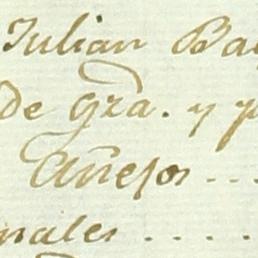 Julian Ba
de gra. y p
Añejos ...
nales ....